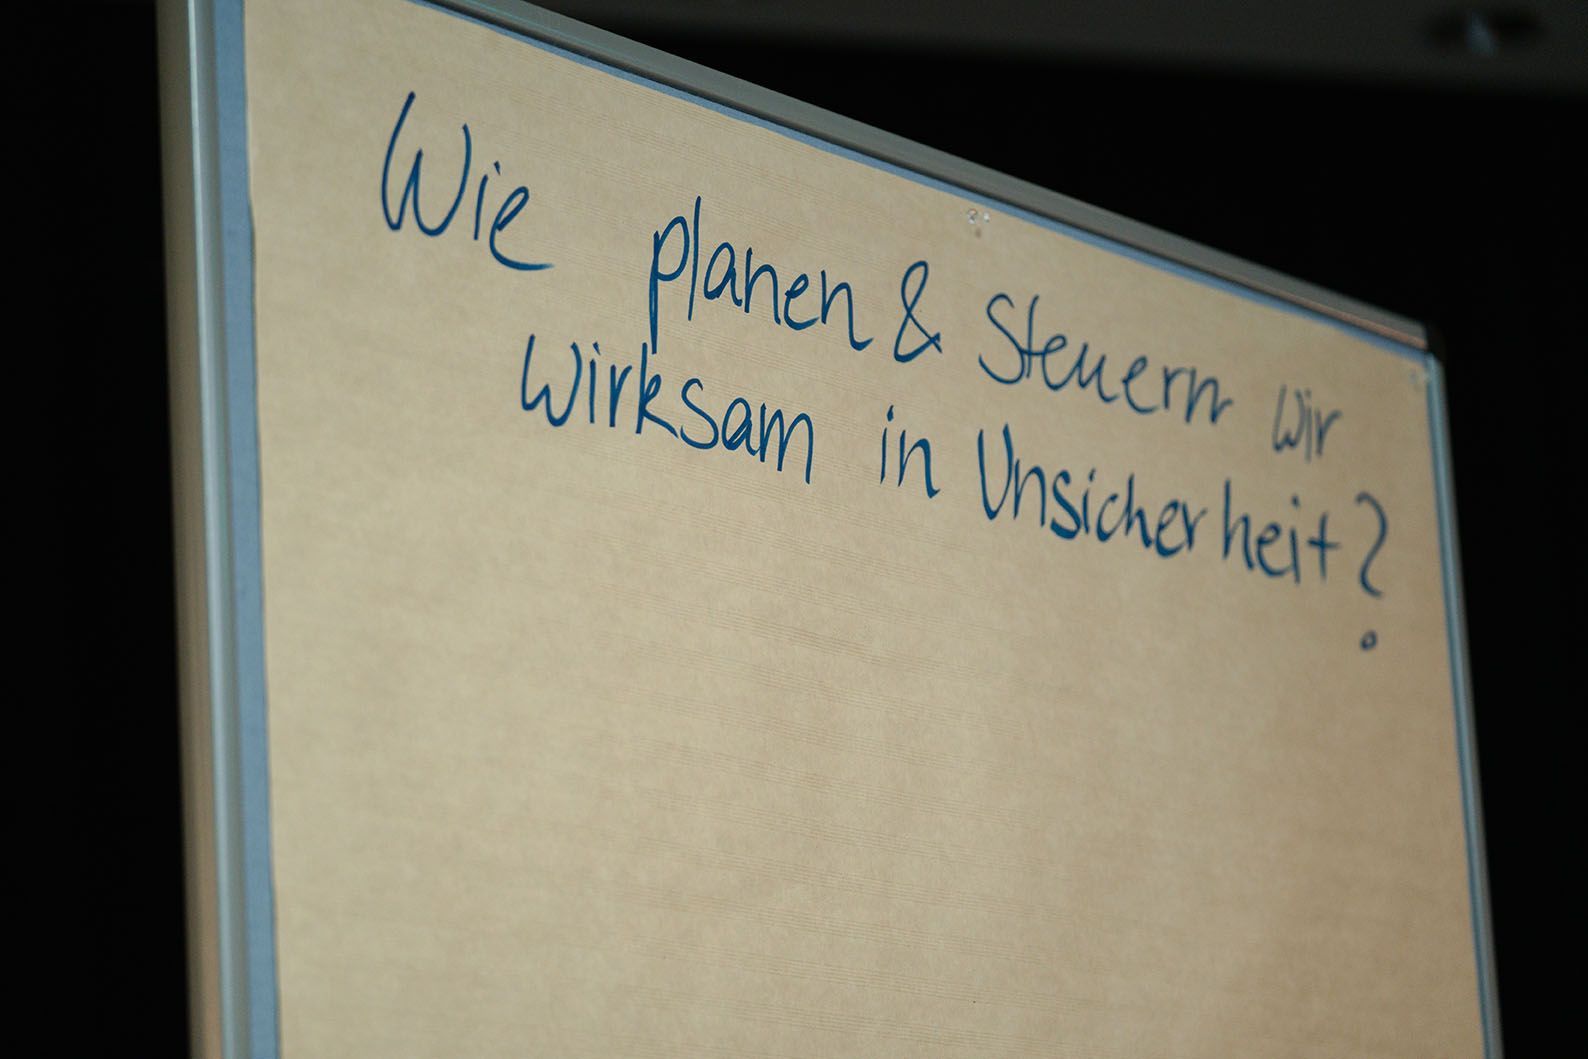 Wie planen & Steuern wir
wirksam in Unsicherheit?